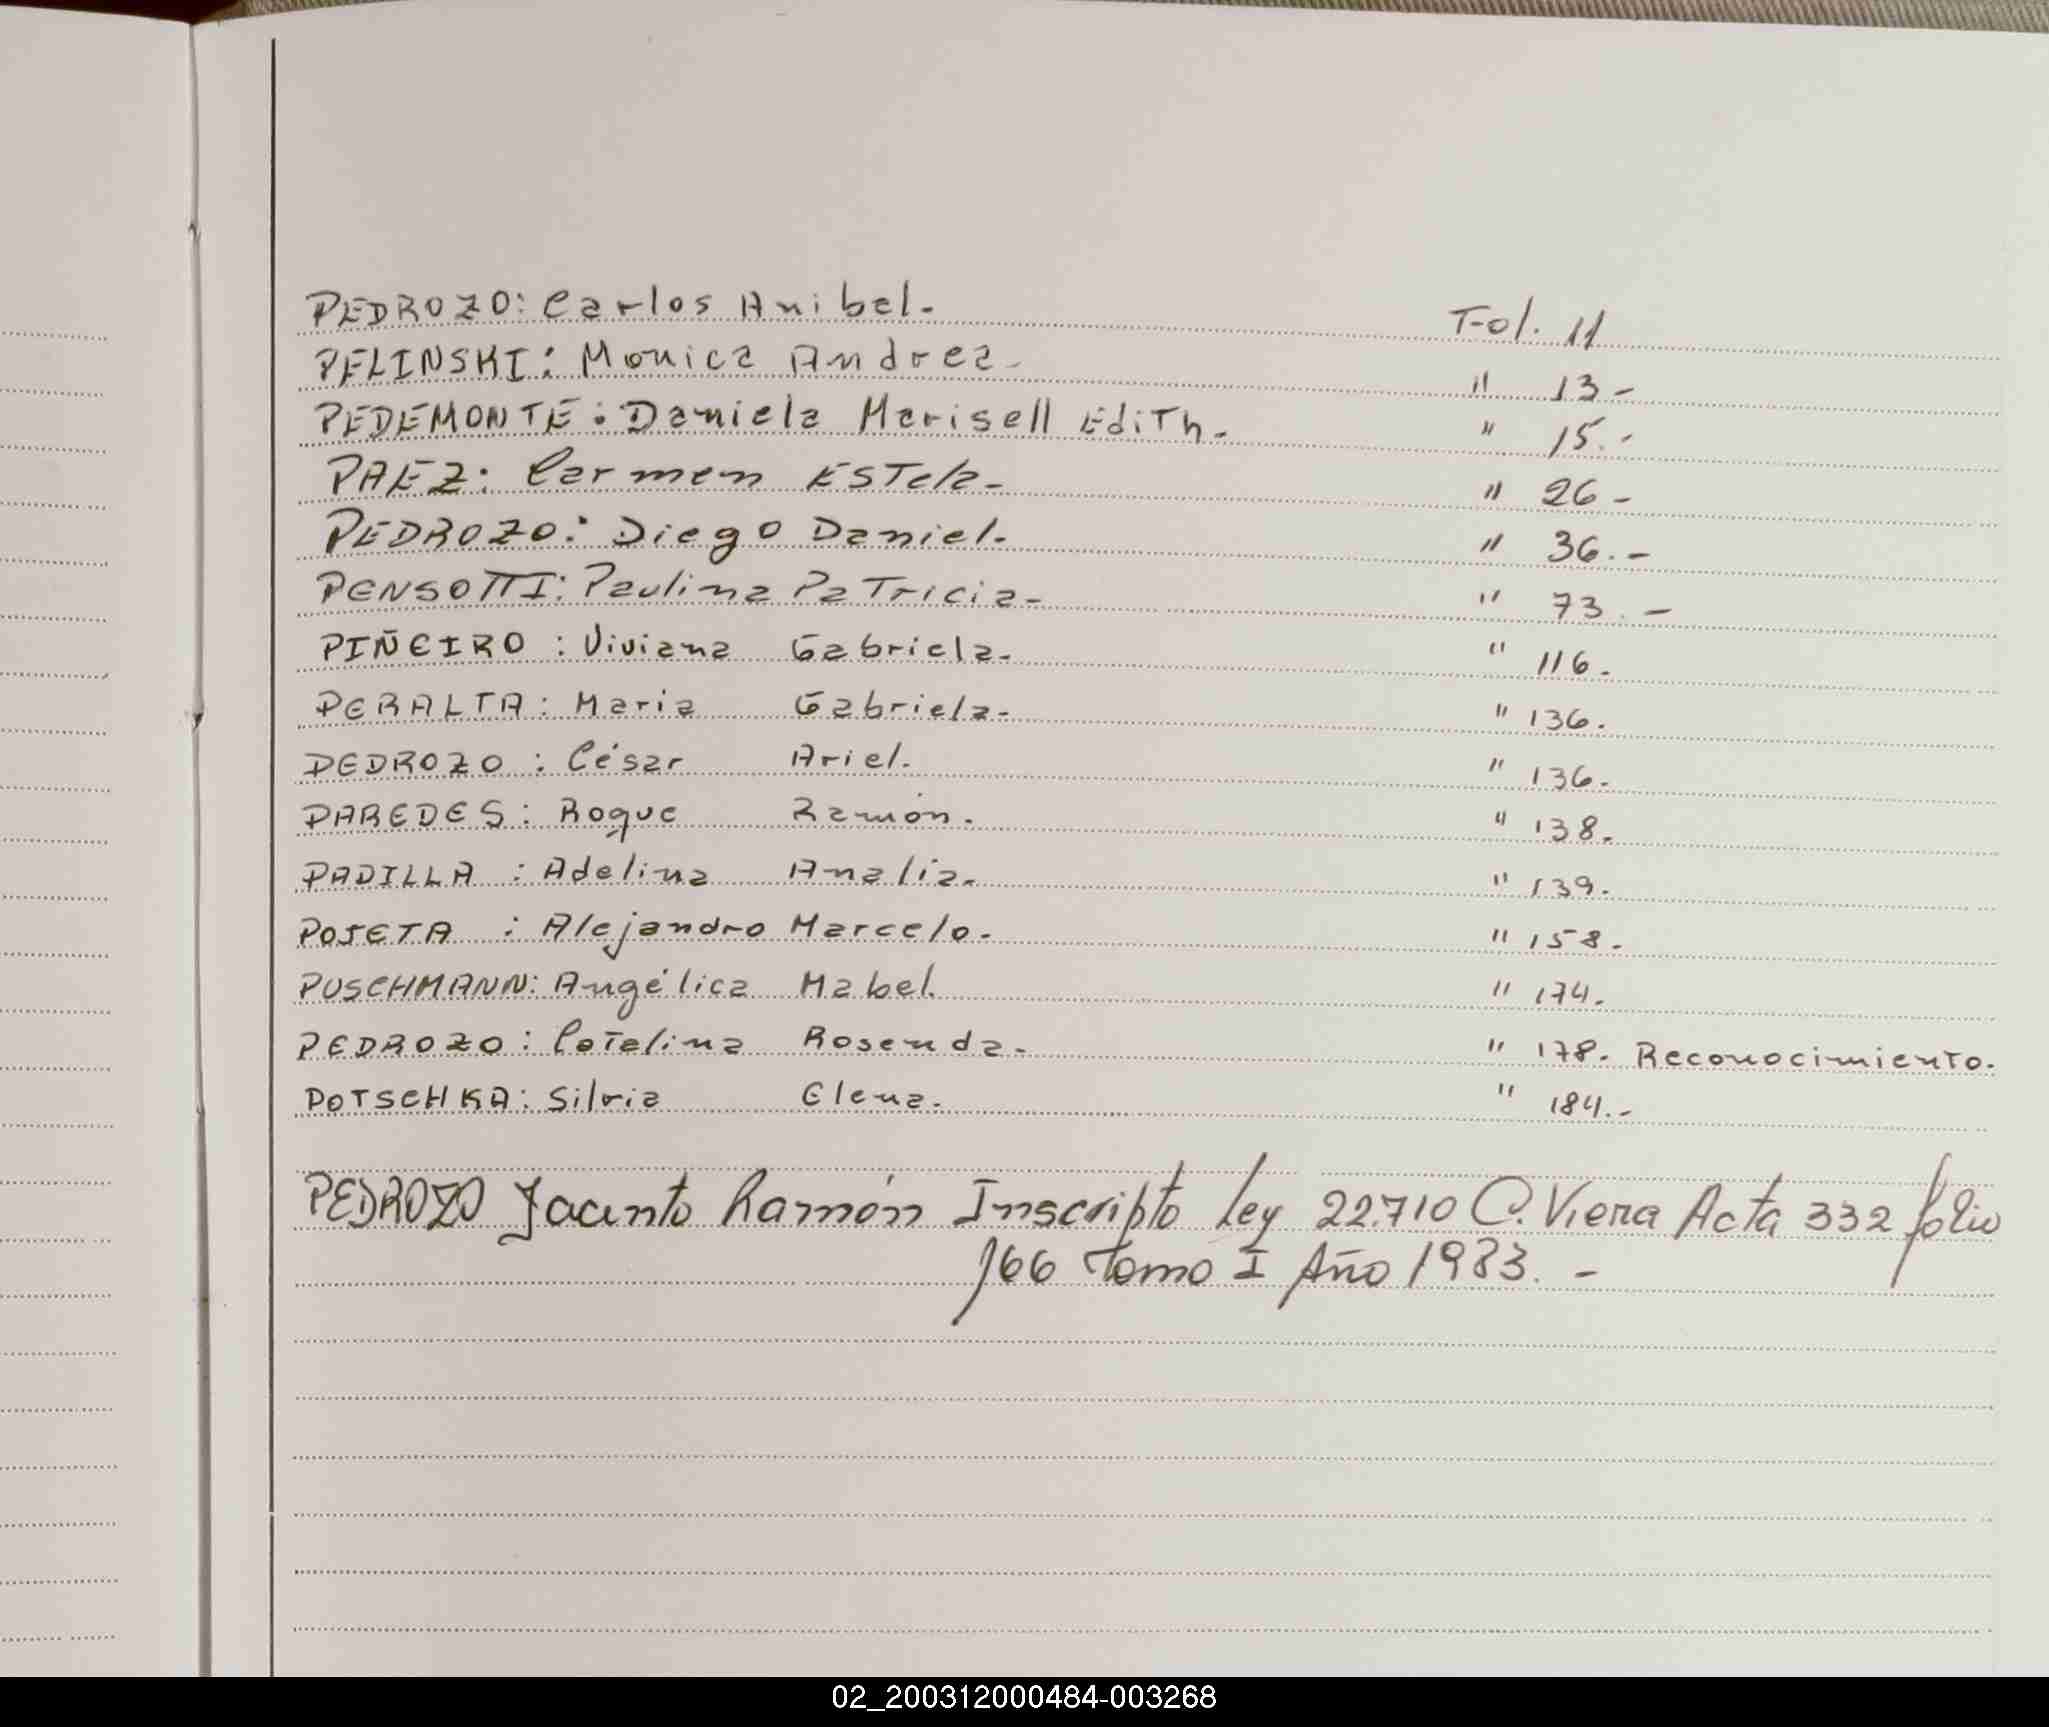 PEDROZO: Carlos Anibal.- Fol. 11
PELINSKI: Monica Andrea- " 13-
PEDEMONTE: Daniela Marisell Edith.- " 15.-
PAEZ: Carmen Estela- " 26-
PEDROZO: Diego Daniel.- " 36.-
PENSOTTI: Paulina Patricia- " 73.-
PIÑEIRO: Viviana Gabriela- " 116.
PERALTA: Maria Gabriela- " 136.
PEDROZO: César Ariel. " 136.
PAREDES: Roque Ramón. " 138.
PADILLA: Adelina Analia- " 139.
POJETA: Alejandro Marcelo- " 158.
PUSCHMANN: Angélica Mabel. " 174.
PEDROZO: Catalina Rosenda- " 178. Reconocimiento.
POTSCHKA: Silvia Elena. " 184.-
PEDROZO Jacinto Ramón Inscripto Ley 22.710 C. Viera Acta 332 folio
166 Tomo I Año 1983.-
02_200312000484-003268